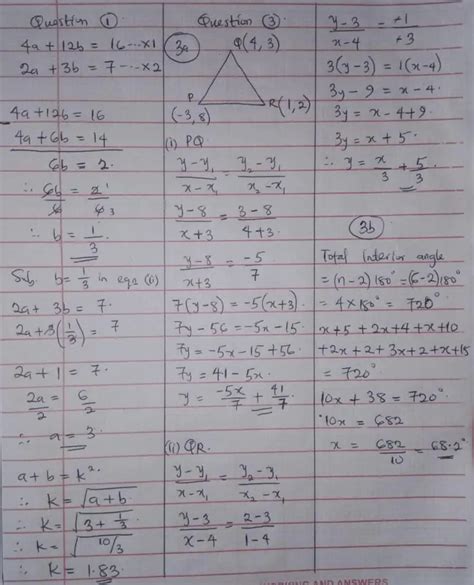 Question ①
4a + 12b = 16 ---- x1
2a + 3b = 7 ---- x2
4a + 12b = 16
4a + 6b = 14
6b = 2.
∴ 6b/6 = 2/6 3
∴ b = 1/3
Sub. b = 1/3 in eqn (i)
2a + 3b = 7.
2a + 3(1/3) = 7
2a + 1 = 7.
2a/2 = 6/2
∴ a = 3.
a + b = k².
∴ K = √a + b.
∴ K = √3 + 1/3
∴ K = √10/3
∴ K = 1.83.
Question ③
3a
Q(4, 3)
P
(-3, 8)
R(1, 2)
(i) PQ
y - y₁/x - x₁ = y₂ - y₁/x₂ - x₁
y - 8/x + 3 = 3 - 8/4 + 3.
y - 8/x + 3 = -5/7
7(y - 8) = -5(x + 3).
7y - 56 = -5x - 15.
7y = -5x - 15 + 56.
7y = 41 - 5x.
y = -5x/7 + 41/7
(ii) QR.
y - y₁/x - x₁ = y₂ - y₁/x₂ - x₁
y - 3/x - 4 = 2 - 3/1 - 4
y - 3/x - 4 = +1/+3
3(y - 3) = 1(x - 4)
3y - 9 = x - 4.
3y = x - 4 + 9.
3y = x + 5.
∴ y = x/3 + 5/3
3b
Total interior angle
= (n - 2)180° = (6 - 2)180°
= 4 × 180° = 720°
x + 5 + 2x + 4 + x + 10
+ 2x + 2 + 3x + 2 + x + 15
= 720°
10x + 38 = 720°
10x = 682
x = 682/10 = 68.2°
AND ANSWERS